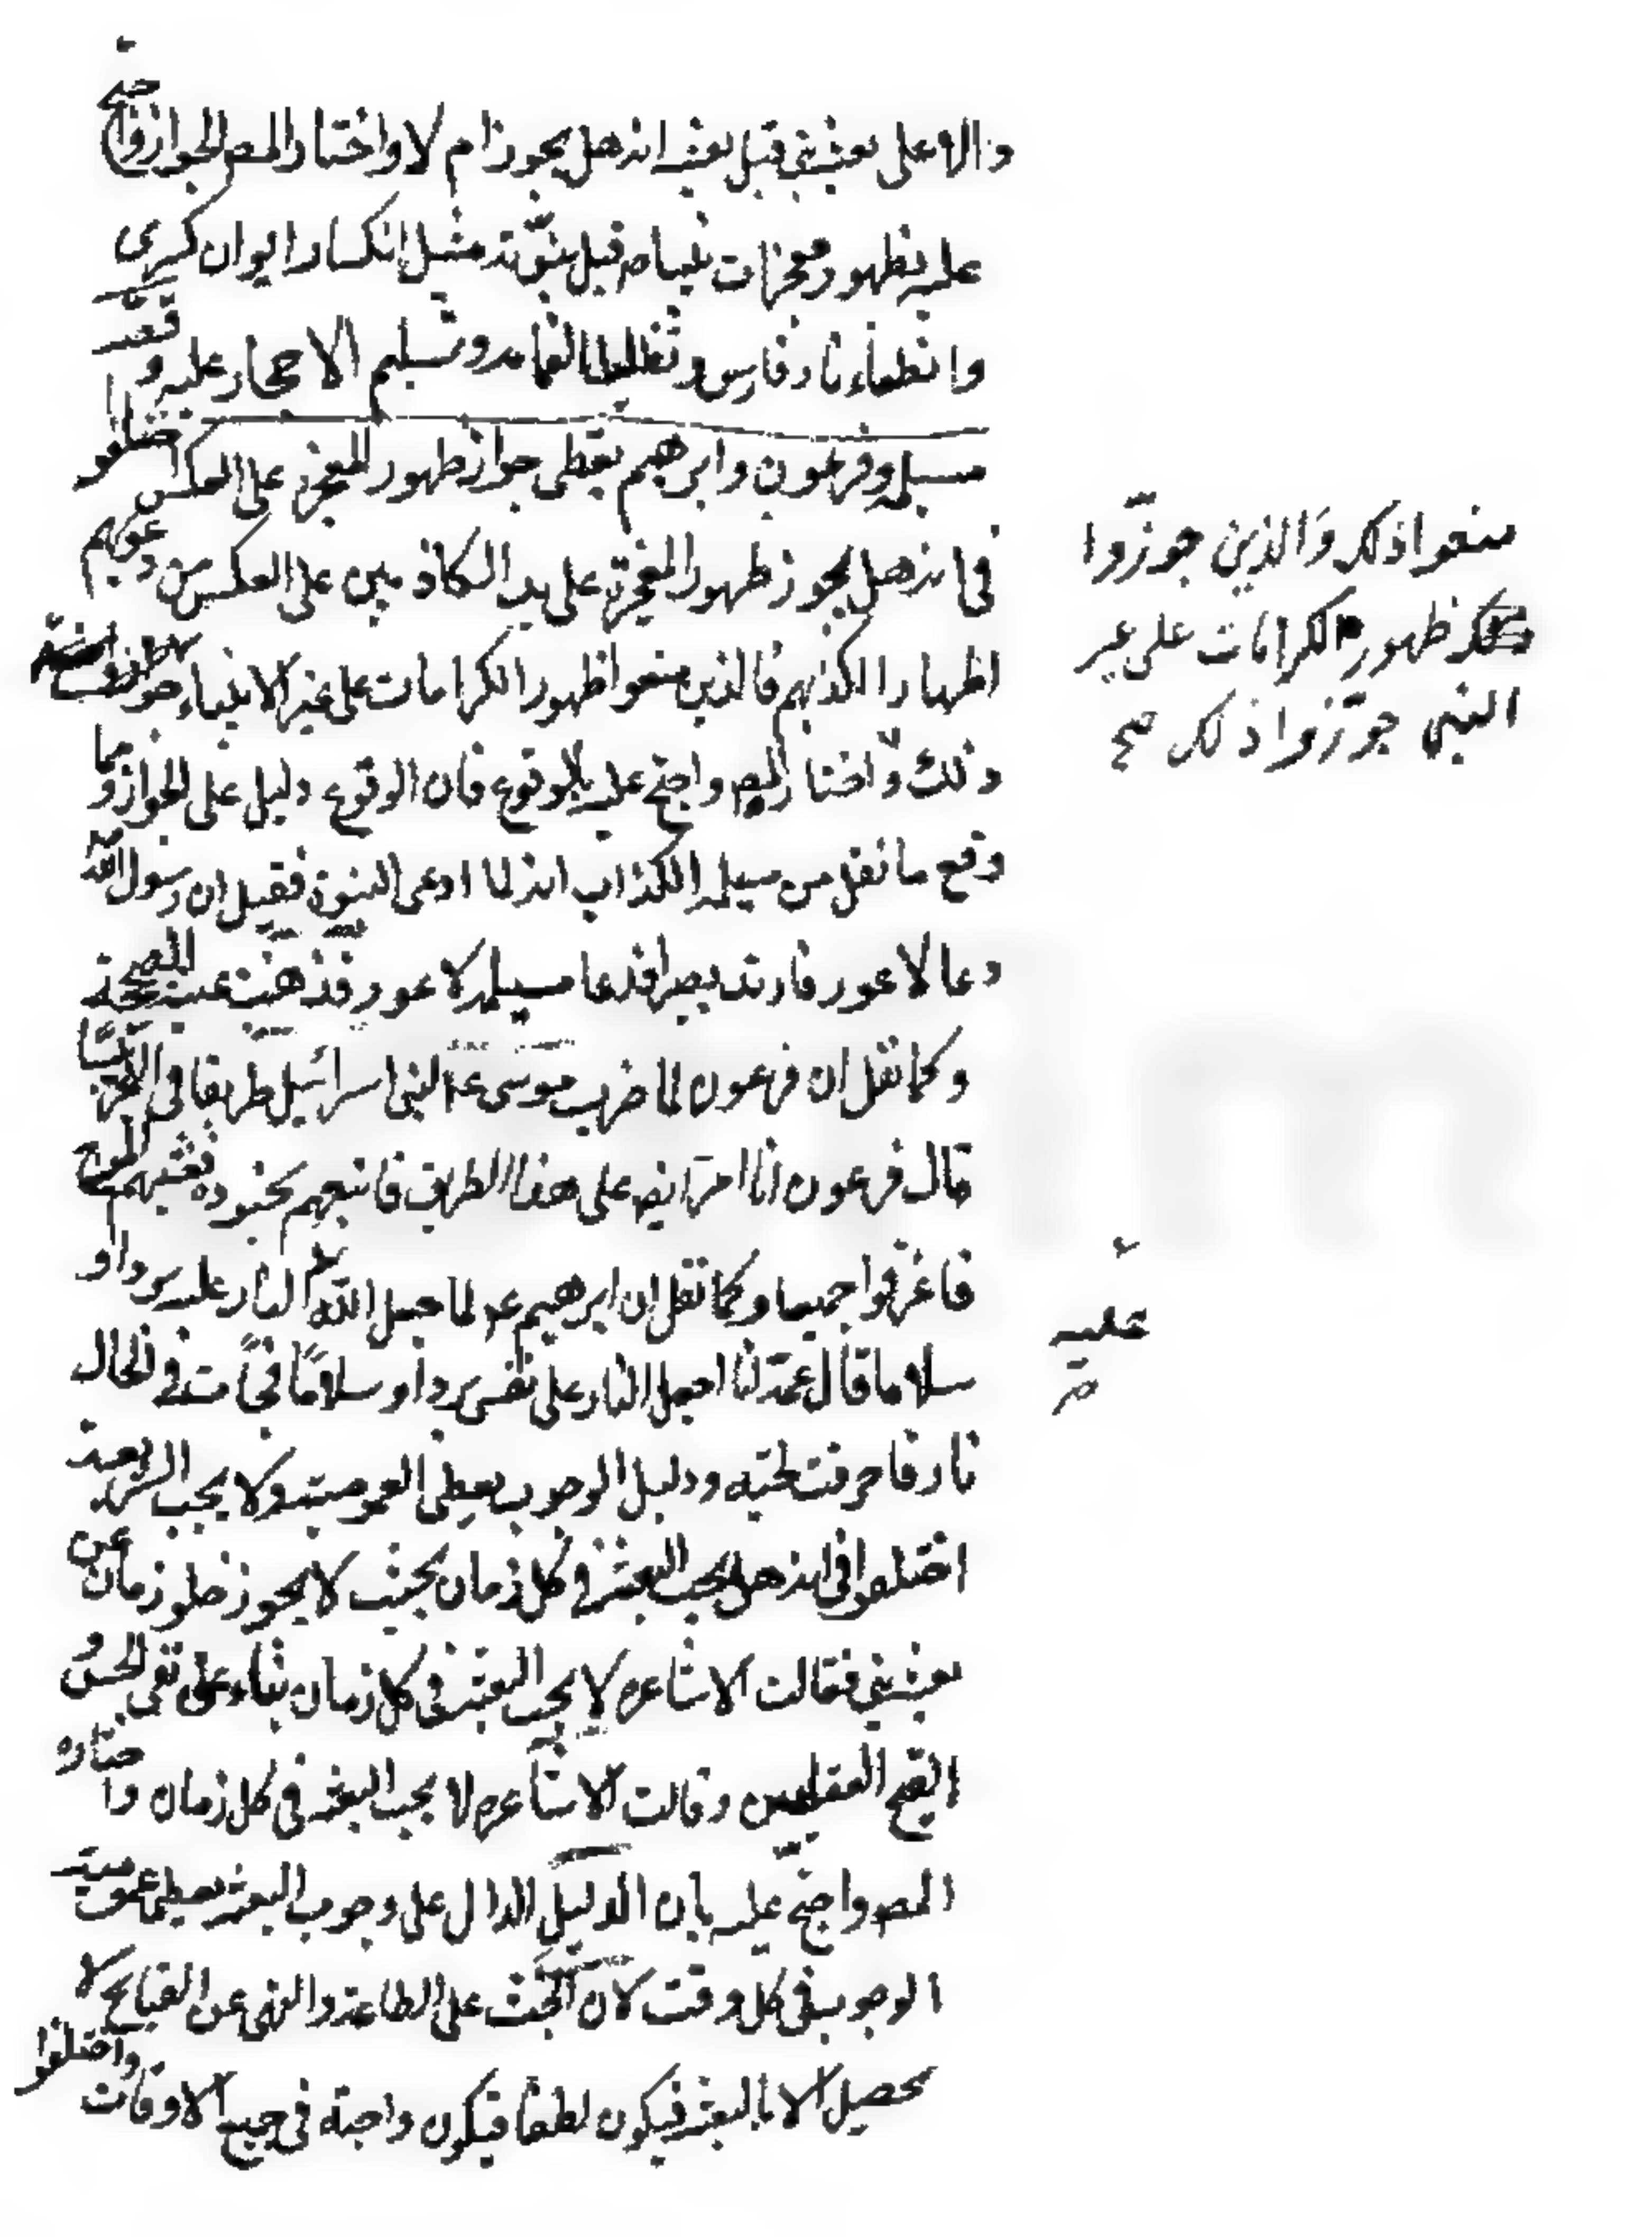 والة على بعثة نبي قبل بعثه انه هل يجوز ام لا واختار المص الجواز واحتج
عليه بظهور معجزات نبينا ص قبل نبوته مثل انكسار ايوان كسرى
وانطفاء نار فارس وتظليل الغمامة وتسليم الاحجار عليه وقصة
مسيلمة وفرعون وابرهيم يعطى جواز ظهور المعجز على العكس اختلفوا
فى انه هل يجوز ظهور المعجزة على يد الكاذبين على العكس من دعويهم
اظهارا لكذبهم فالذين منعوا ظهور الكرامات على غير الانبياء
ذلك واختار المص واحتج عليه بالوقوع فان الوقوع دليل على الجواز ومما
وقع ما نقل من مسيلمة الكذاب انه لما ادعى النبوة فقيل ان رسول الله
دعا لاعور فارتد بصيرا فدعا مسيلمة لاعور فذهبت عينه الصحيحة
وكما نقل ان فرعون لما ضرب موسى ع لبنى اسرائيل طريقا فى البحر يبسا
قال فرعون انا امر ايضا على هذا الطريق فاتبعهم بجنوده فغشيهم الموج
فاغرقوا جميعا وكما نقل ان ابرهيم ع لما جعل الله النار عليه بردا و
سلاما قال عمه انا اجعل النار على نفسى بردا وسلاما فجاءت فى الحال
نار فاحرقت لحيته ودليل الوجوب يعطى العمومية ولا يجب الشريعة
اختلفوا فى انه هل يجب البعثة فى كل زمان بحيث لا يجوز خلو زمان عن
بعثة نبى فقالت الاشاعره لا يجب البعثة فى كل زمان بناء على نفى الحسن و
القبح العقليين وقالت الاشاعره لا يجب البعثة فى كل زمان واختاره
المص واحتج عليه بان الدليل الدال على وجوب البعثة يعطى عمومية
الوجوب فى كل وقت لان الحث على الطاعة والنهى عن القبايح لا
يحصل الا بالبعثة فيكون لطفا فيكون واجبة فى جميع الاوقات واختلفوا
منعوا ذلك والذين جوزوا
ظهور الكرامات على غير
النبى جوزوا ذلك صح
عليه